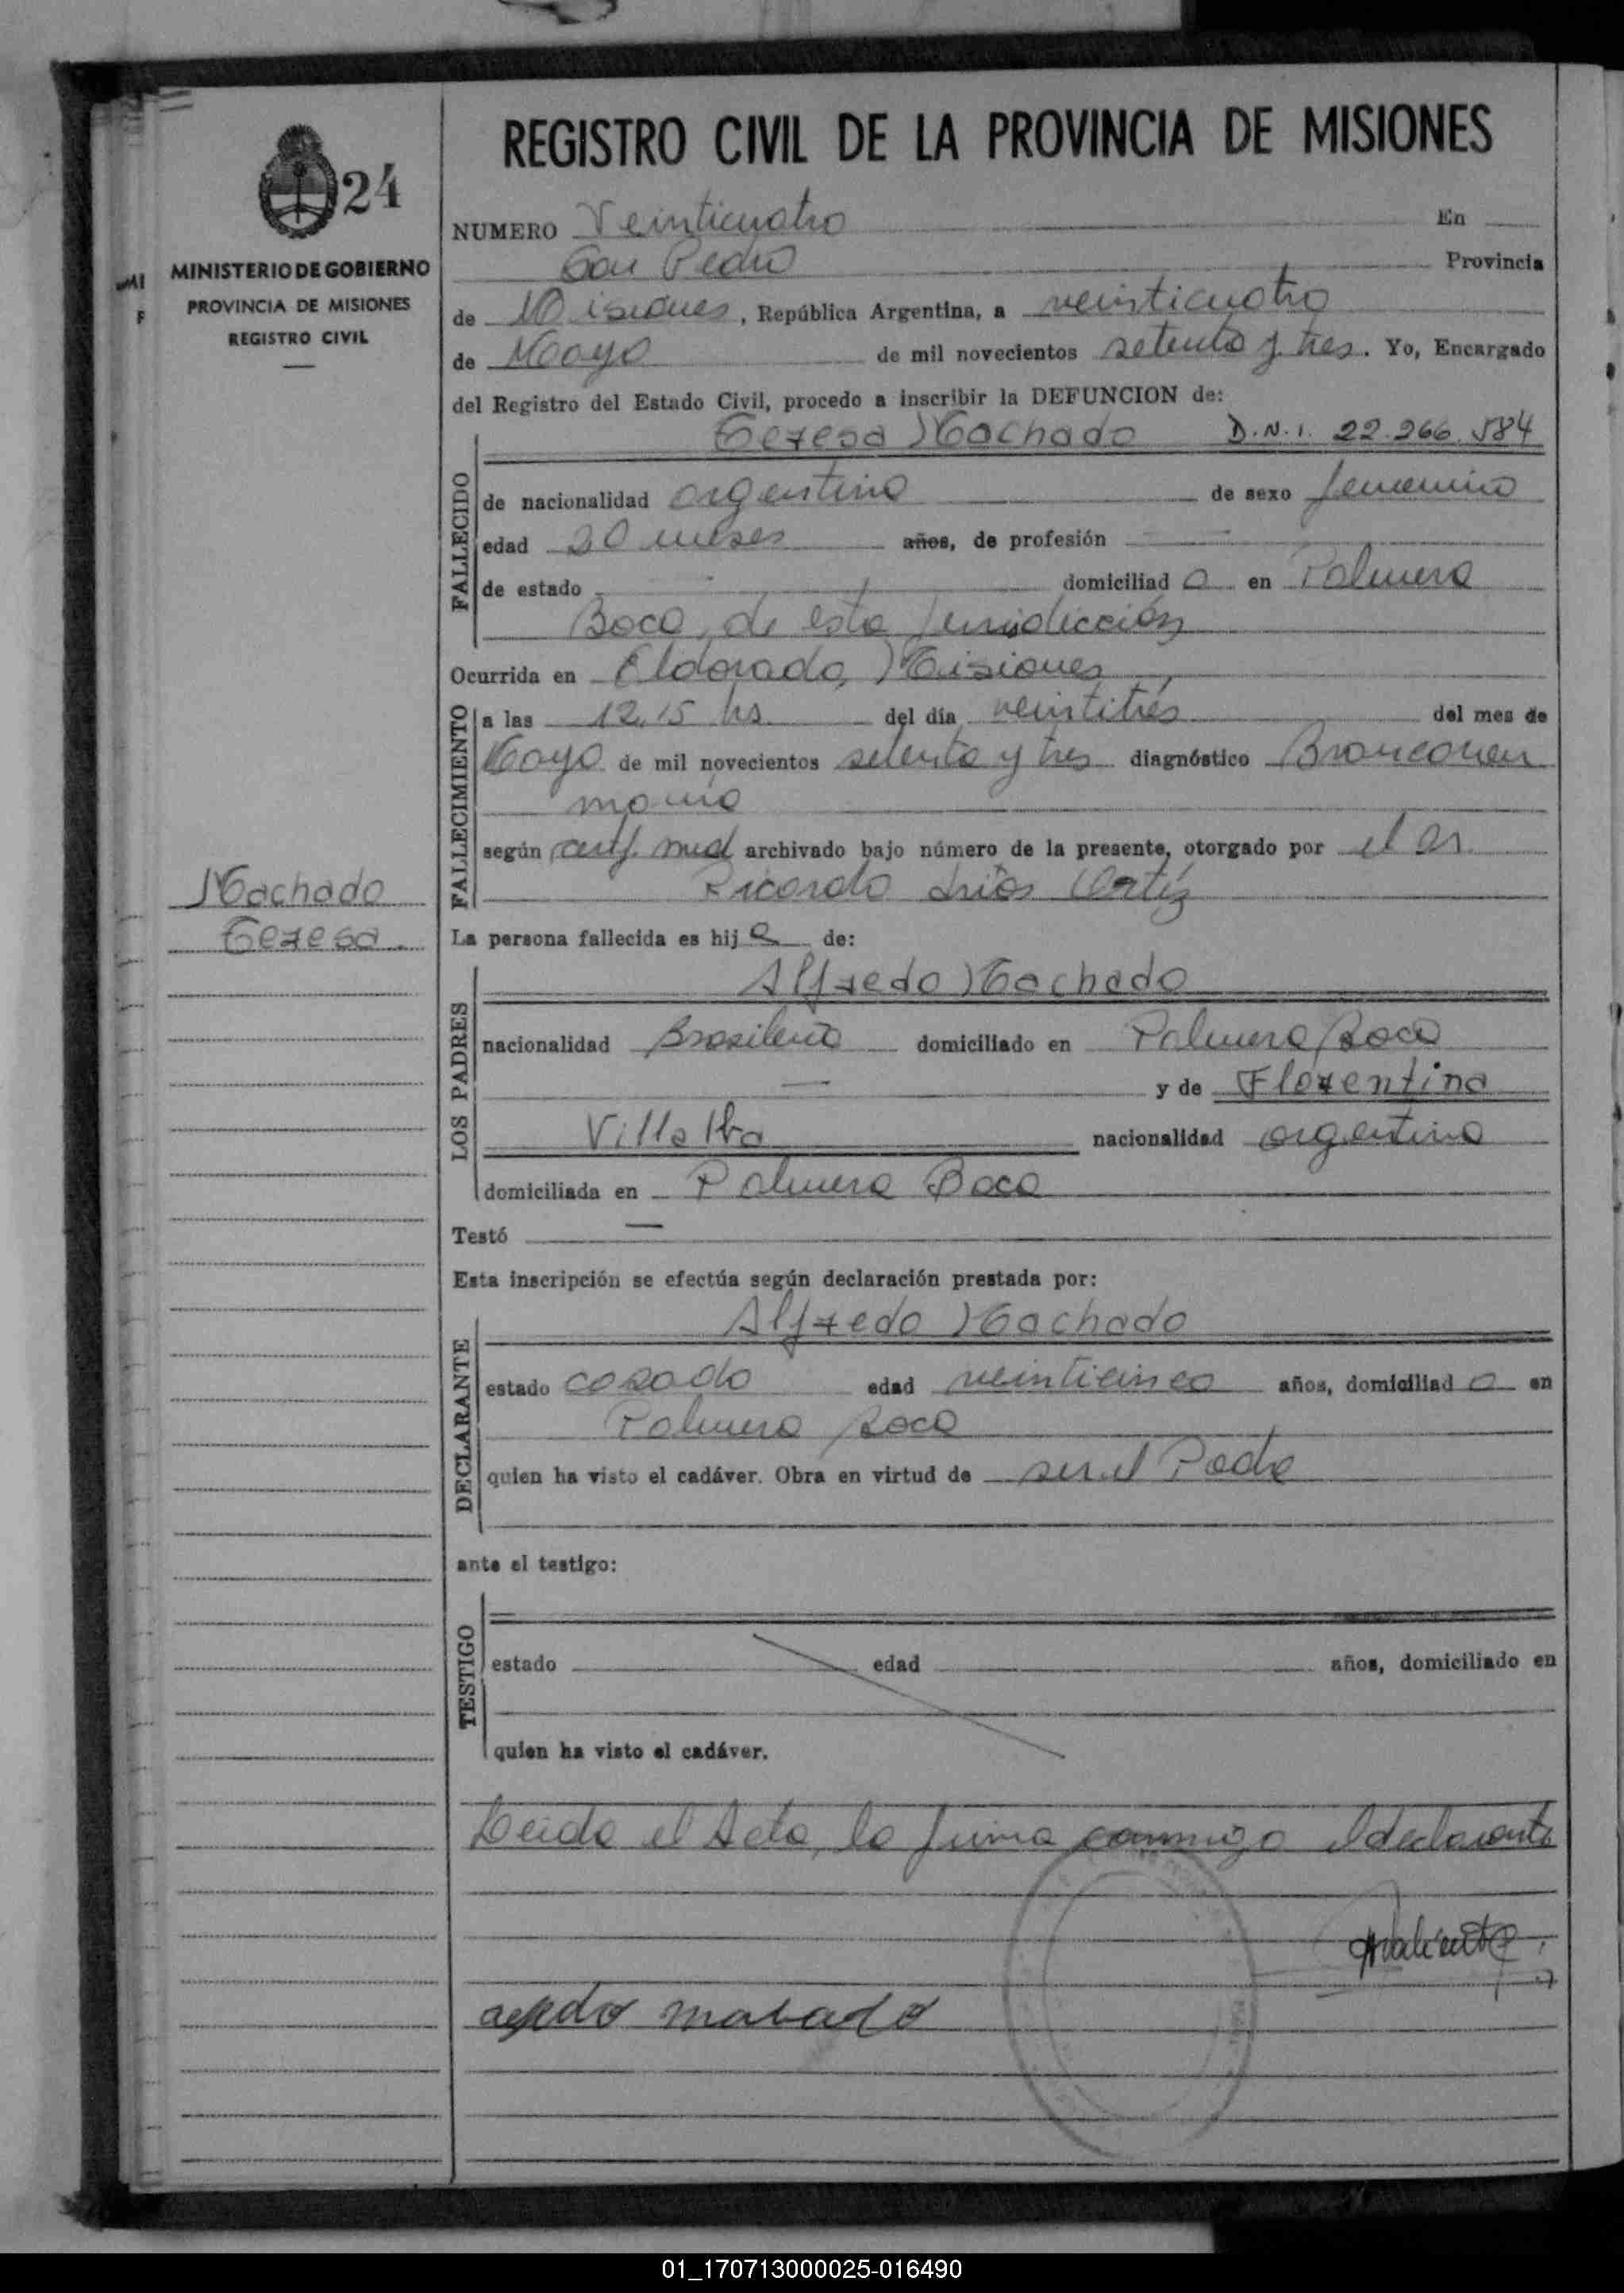 REGISTRO CIVIL DE LA PROVINCIA DE MISIONES
24
MINISTERIO DE GOBIERNO
PROVINCIA DE MISIONES
REGISTRO CIVIL
NUMERO Veinticuatro En
San Pedro Provincia
de Misiones, República Argentina, a veinticuatro
de Mayo de mil novecientos setenta y tres. Yo, Encargado
del Registro del Estado Civil, procedo a inscribir la DEFUNCION de:
Teresa Machado D.N.I. 22.266.584
FALLECIDO
de nacionalidad argentina de sexo femenino
edad 20 meses años, de profesión
de estado domiciliad a en Palmera
Boca, de esta Jurisdicción
Ocurrida en Eldorado, Misiones
FALLECIMIENTO
a las 12,15 hs. del día veintitrés del mes de
Mayo de mil novecientos setenta y tres diagnóstico Bronconeu
monia
según cert. med archivado bajo número de la presente, otorgado por el Dr.
Ricardo Ortíz
Machado
Teresa
La persona fallecida es hij a de:
LOS PADRES
Alfredo Machado
nacionalidad Brasileña domiciliado en Palmera Boca
y de Florentina
Villalba nacionalidad argentina
domiciliada en Palmera Boca
Testó
Esta inscripción se efectúa según declaración prestada por:
DECLARANTE
Alfredo Machado
estado casado edad veinticinco años, domiciliad o en
Palmera Boca
quien ha visto el cadáver. Obra en virtud de ser el Padre
ante el testigo:
TESTIGO
estado edad años, domiciliado en
quien ha visto el cadáver.
Leida el Acta, la firma conmigo el declarante
01_170713000025-016490